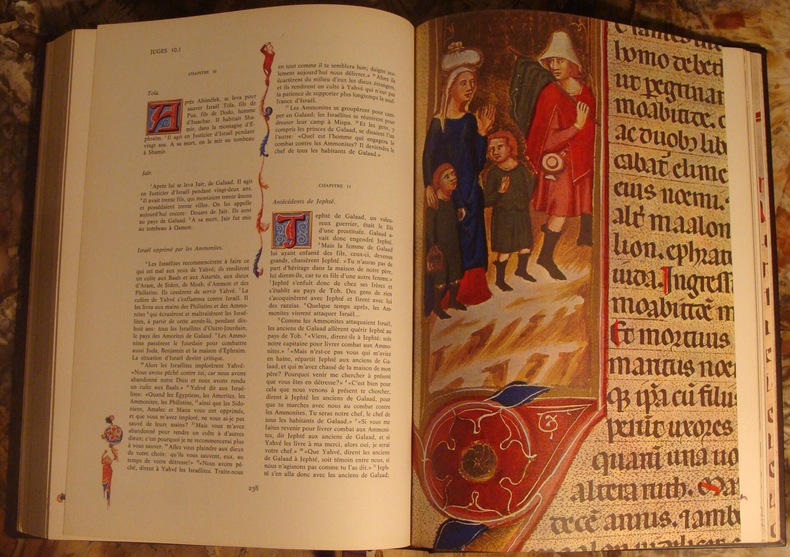 JUGES 10,1
CHAPITRE 10
Tola.
Après Abimélek, se leva pour
sauver Israël Tôla, fils de
Pua, fils de Dodo, homme
d'Issachar. Il habitait Sha-
mir, dans la montagne d'É-
phraïm. Il agit en Justicier d'Israël pendant
vingt ans. A sa mort, on le mit au tombeau
à Shamir.
Jaïr.
Après lui se leva Jaïr, de Galaad. Il agit
en Justicier d'Israël pendant vingt-deux ans.
Il avait trente fils, qui montaient trente ânons
et possédaient trente villes. On les appelle
aujourd'hui encore: Douars de Jaïr. Ils sont
au pays de Galaad. A sa mort, Jaïr fut mis
au tombeau à Qamon.
Israël opprimé par les Ammonites.
Les Israélites recommencèrent à faire ce
qui est mal aux yeux de Yahvé; ils rendirent
un culte aux Baals et aux Astartés, aux dieux
d'Aram, de Sidon, de Moab, d'Ammon et des
Philistins. Ils cessèrent de servir Yahvé. La
colère de Yahvé s'enflamma contre Israël. Il
les livra aux mains des Philistins et des Ammo-
nites qui écrasèrent et maltraitèrent les Israé-
lites, à partir de cette année-là, pendant dix-
huit ans: tous les Israélites d'Outre-Jourdain,
le pays des Amorites de Galaad. Les Ammo-
nites passèrent le Jourdain pour combattre
aussi Juda, Benjamin et la maison d'Éphraïm.
La situation d'Israël devint critique.
Alors les Israélites implorèrent Yahvé:
«Nous avons péché contre toi, car nous avons
abandonné notre Dieu et nous avons rendu
un culte aux Baals.» Yahvé dit aux Israé-
lites: «Quand les Égyptiens, les Amorites, les
Ammonites, les Philistins, ainsi que les Sido-
niens, Amalec et Maon vous ont opprimés,
et que vous m'avez imploré, ne vous ai-je pas
sauvé de leurs mains? Mais vous m'avez
abandonné pour rendre un culte à d'autres
dieux; c'est pourquoi je ne recommencerai plus
à vous sauver. Allez vous plaindre aux dieux
de votre choix: qu'ils vous sauvent, eux, au
temps de votre détresse!» «Nous avons pé-
ché, dirent à Yahvé les Israélites. Traite-nous
en tout comme il te semblera bon; daigne seu-
lement aujourd'hui nous délivrer.» Alors ils
écartèrent du milieu d'eux les dieux étrangers,
et ils rendirent un culte à Yahvé qui n'eut pas
la patience de supporter plus longtemps la souf-
france d'Israël.
Les Ammonites se groupèrent pour cam-
per en Galaad; les Israélites se réunirent pour
dresser leur camp à Mispa. Et les gens, y
compris les princes de Galaad, se disaient l'un
l'autre: «Quel est l'homme qui engagera le
combat contre les Ammonites? Il deviendra le
chef de tous les habitants de Galaad.»
CHAPITRE 11
Antécédents de Jephté.
Jephté de Galaad, un valeu-
reux guerrier, était le fils
d'une prostituée. Galaad a-
vait donc engendré Jephté.
Mais la femme de Galaad
lui ayant enfanté des fils, ceux-ci, devenus
grands, chassèrent Jephté. «Tu n'auras pas de
part d'héritage dans la maison de notre père,
lui dirent-ils, car tu es fils d'une autre femme.»
Jephté s'enfuit donc de chez ses frères et
s'établit au pays de Tob. Des gens de rien
s'accoquinèrent avec Jephté et firent avec lui
des razzias. Quelque temps après, les Am-
monites vinrent attaquer Israël...
Comme les Ammonites attaquaient Israël,
les anciens de Galaad allèrent quérir Jephté au
pays de Tob. «Viens, dirent-ils à Jephté: sois
notre capitaine pour livrer combat aux Ammo-
nites.» «Mais n'est-ce pas vous qui m'avez
en haine, répartit Jephté aux anciens de Gala-
ad, et qui m'avez chassé de la maison de mon
père? Pourquoi venir me chercher à présent
que vous êtes en détresse?» «C'est bien pour
cela que nous venons à présent te chercher,
dirent à Jephté les anciens de Galaad, pour
que tu marches avec nous au combat contre
les Ammonites. Tu seras notre chef, le chef de
tous les habitants de Galaad.» «Si vous me
faites revenir pour livrer combat aux Ammoni-
tes, dit Jephté aux anciens de Galaad, et si
Yahvé les livre à ma merci, alors oui, je serai
votre chef.» «Que Yahvé, dirent les anciens
de Galaad à Jephté, soit témoin entre nous, si
nous n'agissons pas comme tu l'as dit.» Jeph-
té s'en alla donc avec les anciens de Galaad;
238
homo debetl
ut pegrinar
moabitide. c
ac duobz lib
cabat elimc
eius noemi.
alt maalon
lion. ephrat
iuda. Ingress
moabitide m
Et mortuus
maritus noe
q̄ ipa cū filiis
petit uxores
quarū una uo
altera ruth. Ma
decē annis.